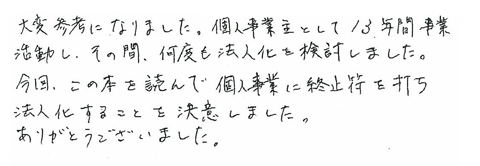 大変参考になりました。個人事業主として13年間事業
活動し、その間、何度も法人化を検討しました。
今回、この本を読んで個人事業に終止符を打ち
法人化することを決意しました。
ありがとうございました。